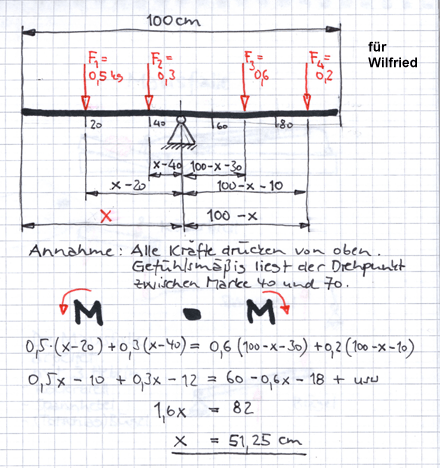 100 cm
für
Wilfried
F1= F2= F3= F4=
0,5 kg 0,3 0,6 0,2
20 40 60 80
x-40 100-x-30
x-20 100-x-10
x 100-x
Annahme: Alle Kräfte drücken von oben.
Gefühlsmäßig liest der Drehpunkt
zwischen Marke 40 und 70.
M M
0,5·(x-20)+0,3(x-40) = 0,6(100-x-30)+0,2(100-x-10)
0,5x - 10 + 0,3x - 12 = 60 - 0,6x - 18 + usw
1,6x = 82
x = 51,25 cm